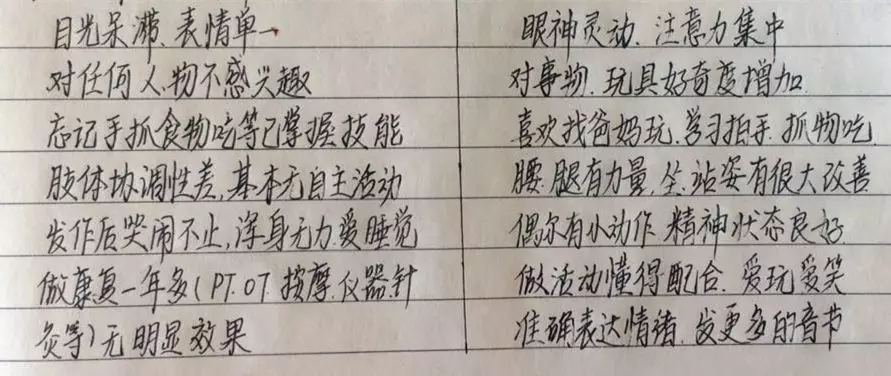 目光呆滞、表情单一
对任何人、物不感兴趣
忘记手抓食物吃等已掌握技能
肢体协调性差,基本无自主活动
发作后哭闹不止,浑身无力.爱睡觉
做康复一年多(PT.OT.按摩.仪器.针
灸等)无明显效果
眼神灵动、注意力集中
对事物.玩具好奇度增加
喜欢找爸妈玩.学习拍手.抓物吃.
腰.腿有力量,坐.站姿有很大改善
偶尔有小动作.精神状态良好
做活动懂得配合.爱玩爱笑
准确表达情绪.发更多的音节